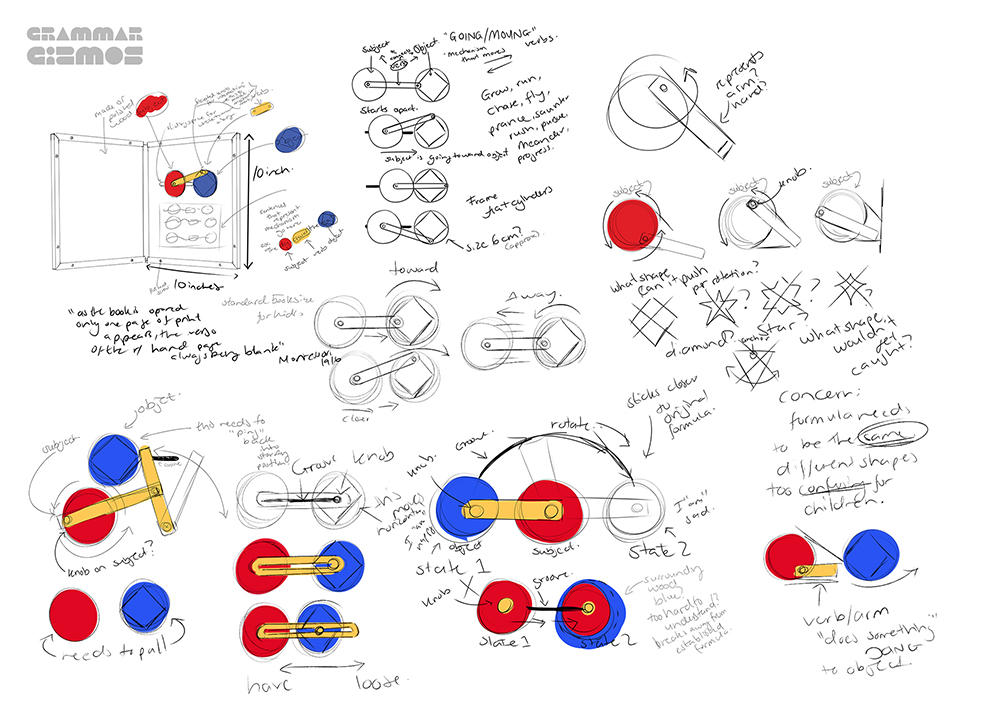 GRAMMAR
GIZMOS
made of
polished
wood
10 inch.
10 inches
sentences
that represent
mechanism
go here
subject verb object
"as the book is opened
only one page of print
appears, the verso
of the right hand page
always being blank"
Montessori
1916
standard book size
for kids
Subject
verb
Object
"GOING/MOVING"
verbs.
mechanism
that moves
Starts apart.
subject is going toward object
Grow, run,
chase, fly,
prance, saunter
rush, pursue
meander,
progress.
Frame
flat cylinders
size 6cm?
(approx).
toward
closer
Away.
represents
arm?
hand?
subject
subject
knob.
subject
what shape
can it push
for rotation?
diamond?
Star?
anchor
what shape
wouldn't
get
caught?
concern:
formula needs
to be the same
different shapes
too confusing for
children.
sticks closer
to
original
formula.
rotate.
Groove.
knob.
object
subject.
state 1
state 2
I "am"
sad.
knob
groove.
state 1
state 2
surrounding
wood
blue?
too hard to
understand?
breaks away from
established
formula.
object.
subject
this needs to
"ping"
back
into
starting
position
knob on subject?
needs to pull
Groove
knob
have
loose.
verb/arm
"does something"
DOING
to object.